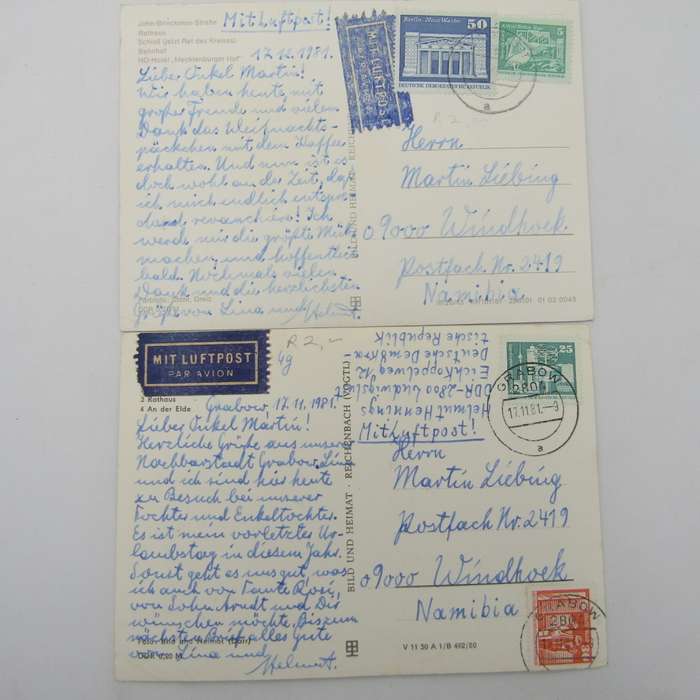 John-Brinckman-Straße
Rathaus
Schloß (jetzt Rat des Kreises)
Bahnhof
HO-Hotel „Mecklenburger Hof"
Mit Luftpost!
17.12.1981.
Lieber Onkel Martin!
Wir haben heute mit
großer Freude und vielen
Dank das Weihnachts-
päckchen mit dem Kaffee
erhalten. Und nun ist es
doch wohl an die Zeit, daß
ich mich endlich entspre-
chend revanchiere! Ich
werde mir die größte Mühe
machen, und hoffentlich
bald. Nochmals vielen
Dank und die herzlichsten
Grüße von Lina und Helmut.
MIT LUFTPOST
Berlin, Neue Wache
50
DEUTSCHE DEMOKRATISCHE REPUBLIK
5
a
R 2,-
Herrn
Martin Liebing
09000 Windhoek
Postfach Nr. 2419
Namibia
BILD UND HEIMAT REICHENBACH
01 02 0043
MIT LUFTPOST
PAR AVION
R 2,-
4g
3 Rathaus
4 An der Elde
Grabow, 17.11.1981.
Lieber Onkel Martin!
Herzliche Grüße aus unserer
Nachbarstadt Grabow. Lina
und ich sind hier heute
zu Besuch bei unserer
Tochter und Enkeltochter.
Es ist mein vorletztes Ur-
laubstag in diesem Jahr.
Sonst geht es uns gut, was
ich auch von Tante Rosi,
von Sohn Arndt und Dir
wünschen möchte. Bis zum
nächsten Brief alles Gute
von Lina und Helmut.
Foto: Bild und Heimat
DDR 0,20 M
BILD UND HEIMAT · REICHENBACH (VOGTL)
Helmut Hennings
DDR-2800 Ludwigslust
Erich-Köppelweg 12
Deutsche Demokra-
tische Republik
Mit Luftpost!
25
GRABOW
2804
17.11.81.-9
a
Herrn
Martin Liebing
Postfach Nr. 2419
09000 Windhoek
Namibia
GRABOW
280
80
V 11 30 A 1/B 492/80